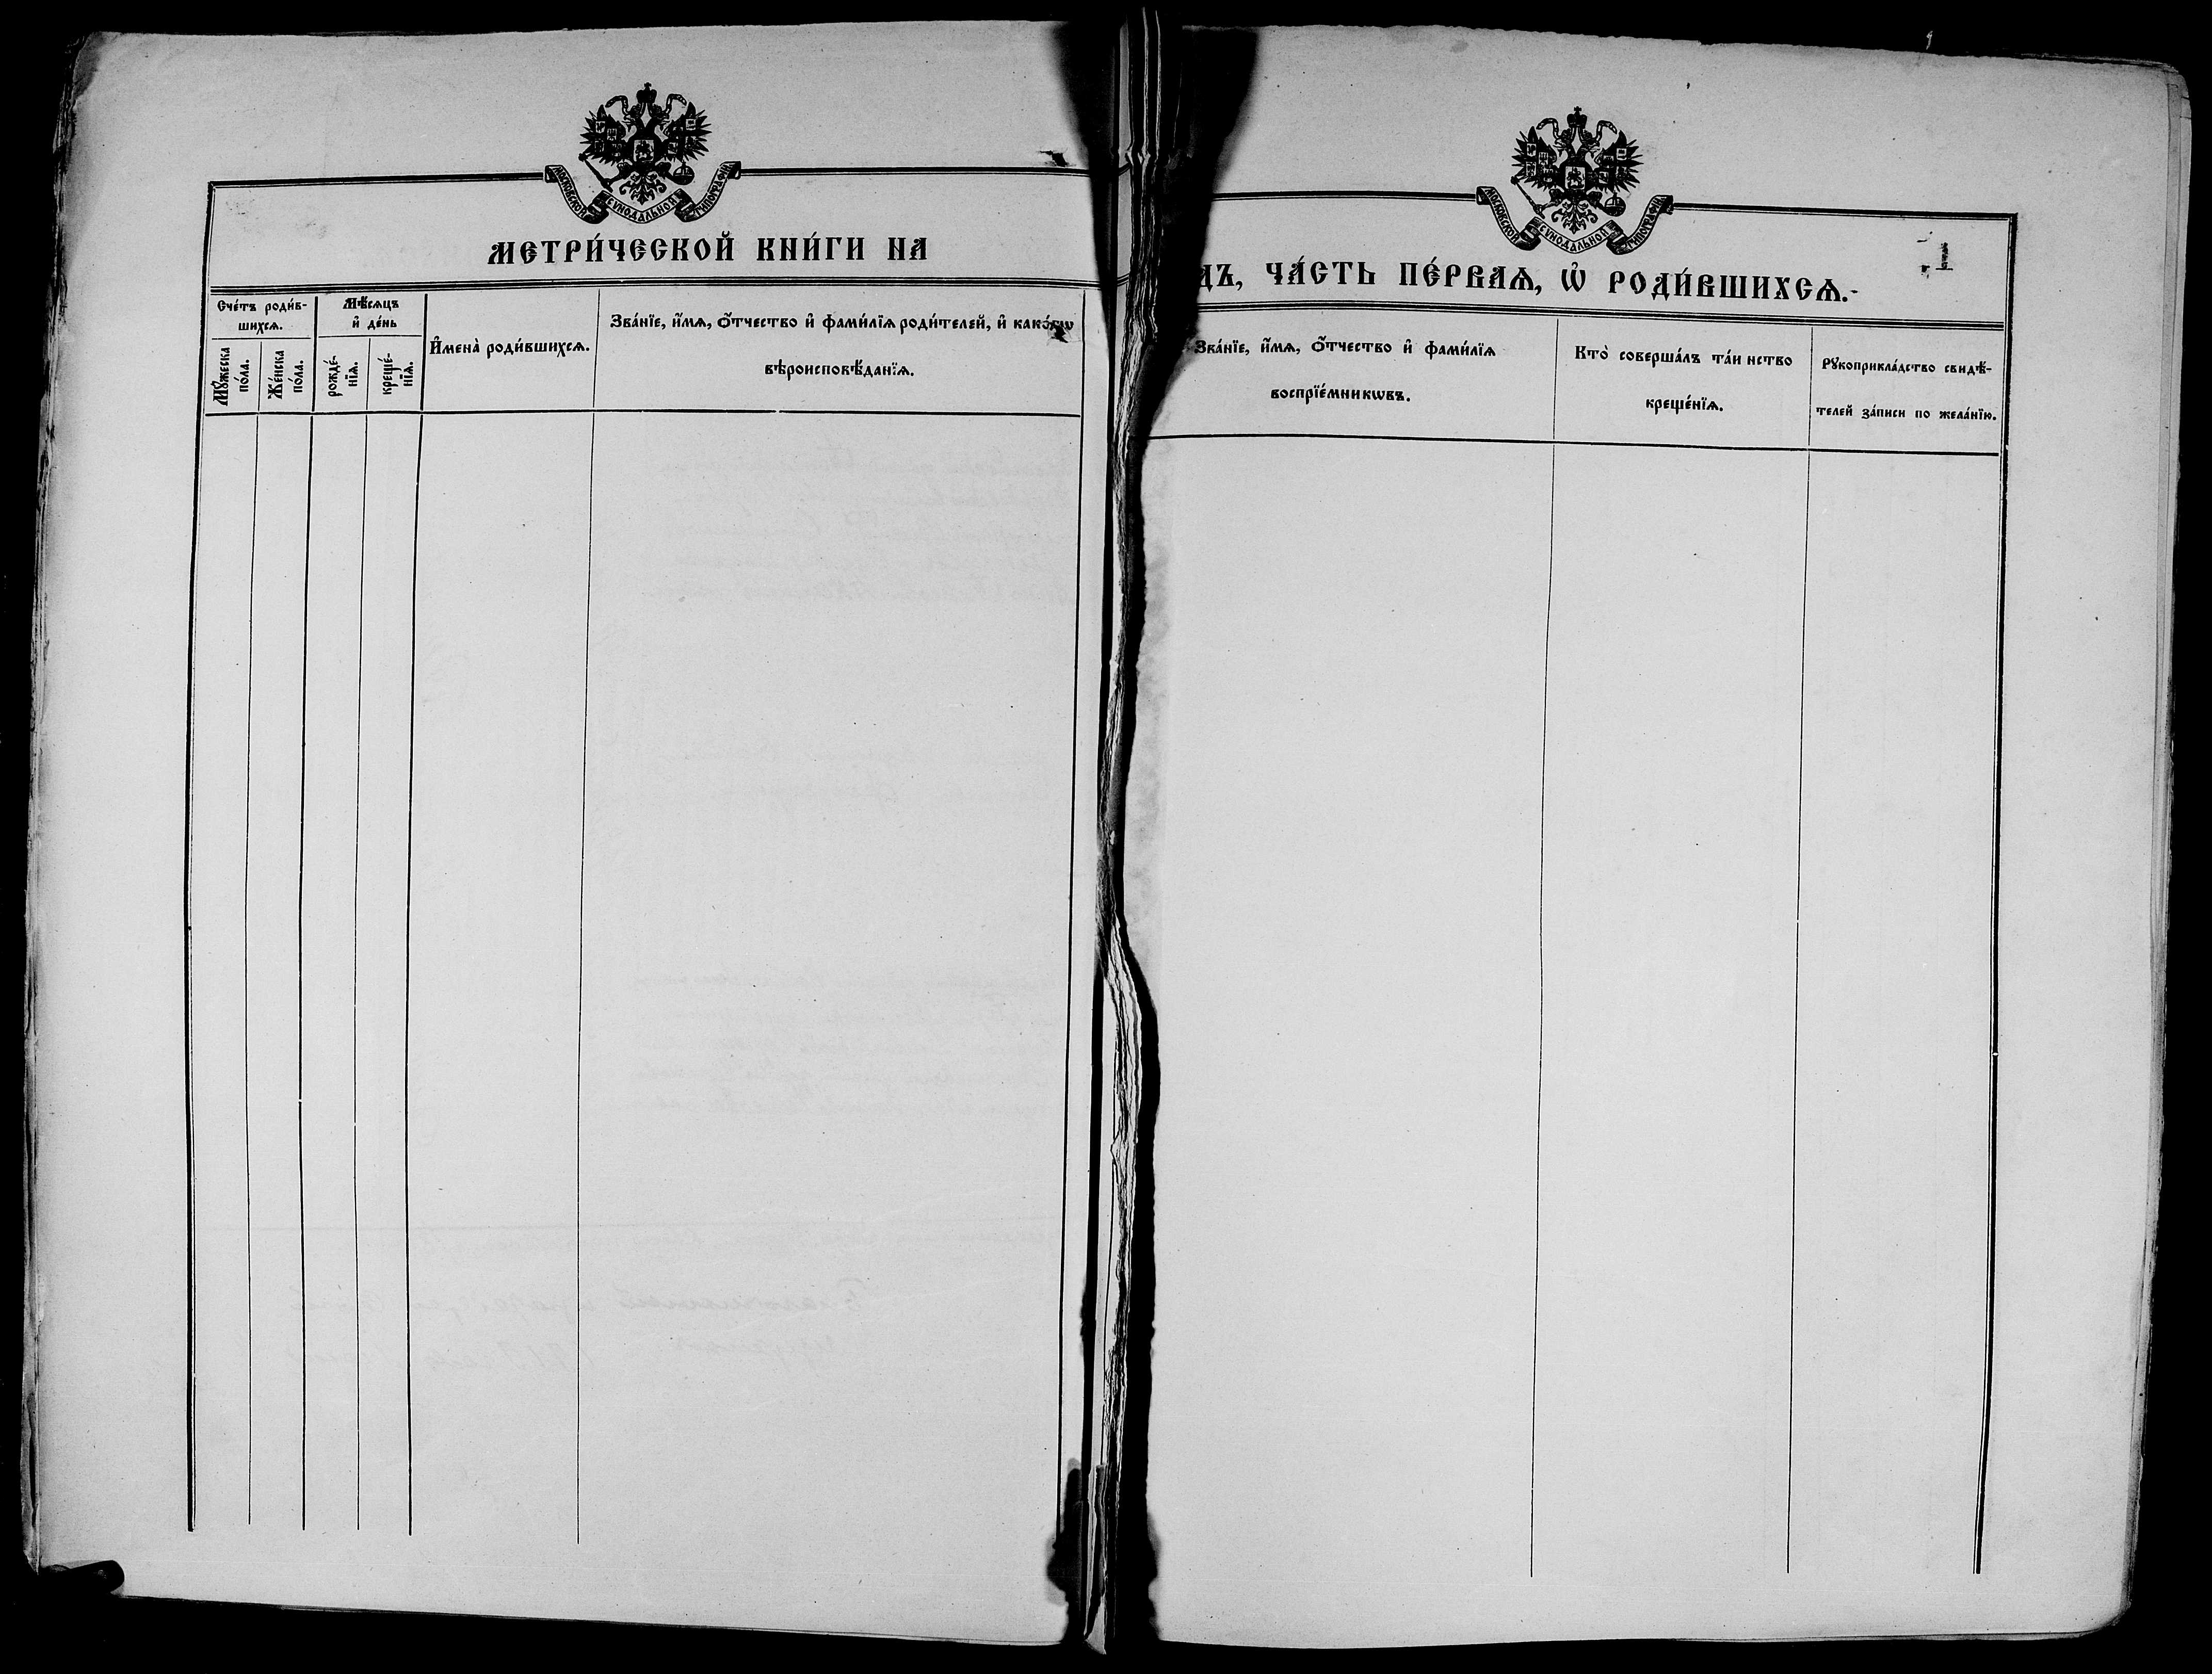 МОСКОВСКОЙ СѴНОДАЛЬНОЙ ТИПОГРАФІИ
МЕТРИ́ЧЕСКОЙ КНИ́ГИ НА
Сче́тъ роди́в-
шихсѧ.
Мꙋ́жеска
по́ла.
Же́нска
по́ла.
Мѣ́сѧцъ
и҆ де́нь
рожде́-
нїѧ.
креще́-
нїѧ.
И҆мена̀ роди́вшихсѧ.
Зва́нїе, и҆́мѧ, ѻ҆́тчество и҆ фами́лїѧ роди́телей, и҆ како́гѡ
вѣроисповѣ́данїѧ.
МОСКОВСКОЙ СѴНОДАЛЬНОЙ ТИПОГРАФІИ
1
ДЪ, ЧА́СТЬ ПЕ́РВАѦ, Ѽ РОДИ́ВШИХСѦ.
Зва́нїе, и҆́мѧ, ѻ҆́тчество и҆ фами́лїѧ
воспрїе́мникѡвъ.
Кто̀ соверша́лъ та́инство
креще́нїѧ.
Рꙋкоприкла́дство свидѣ́-
телей за́писи по жела́нїю.